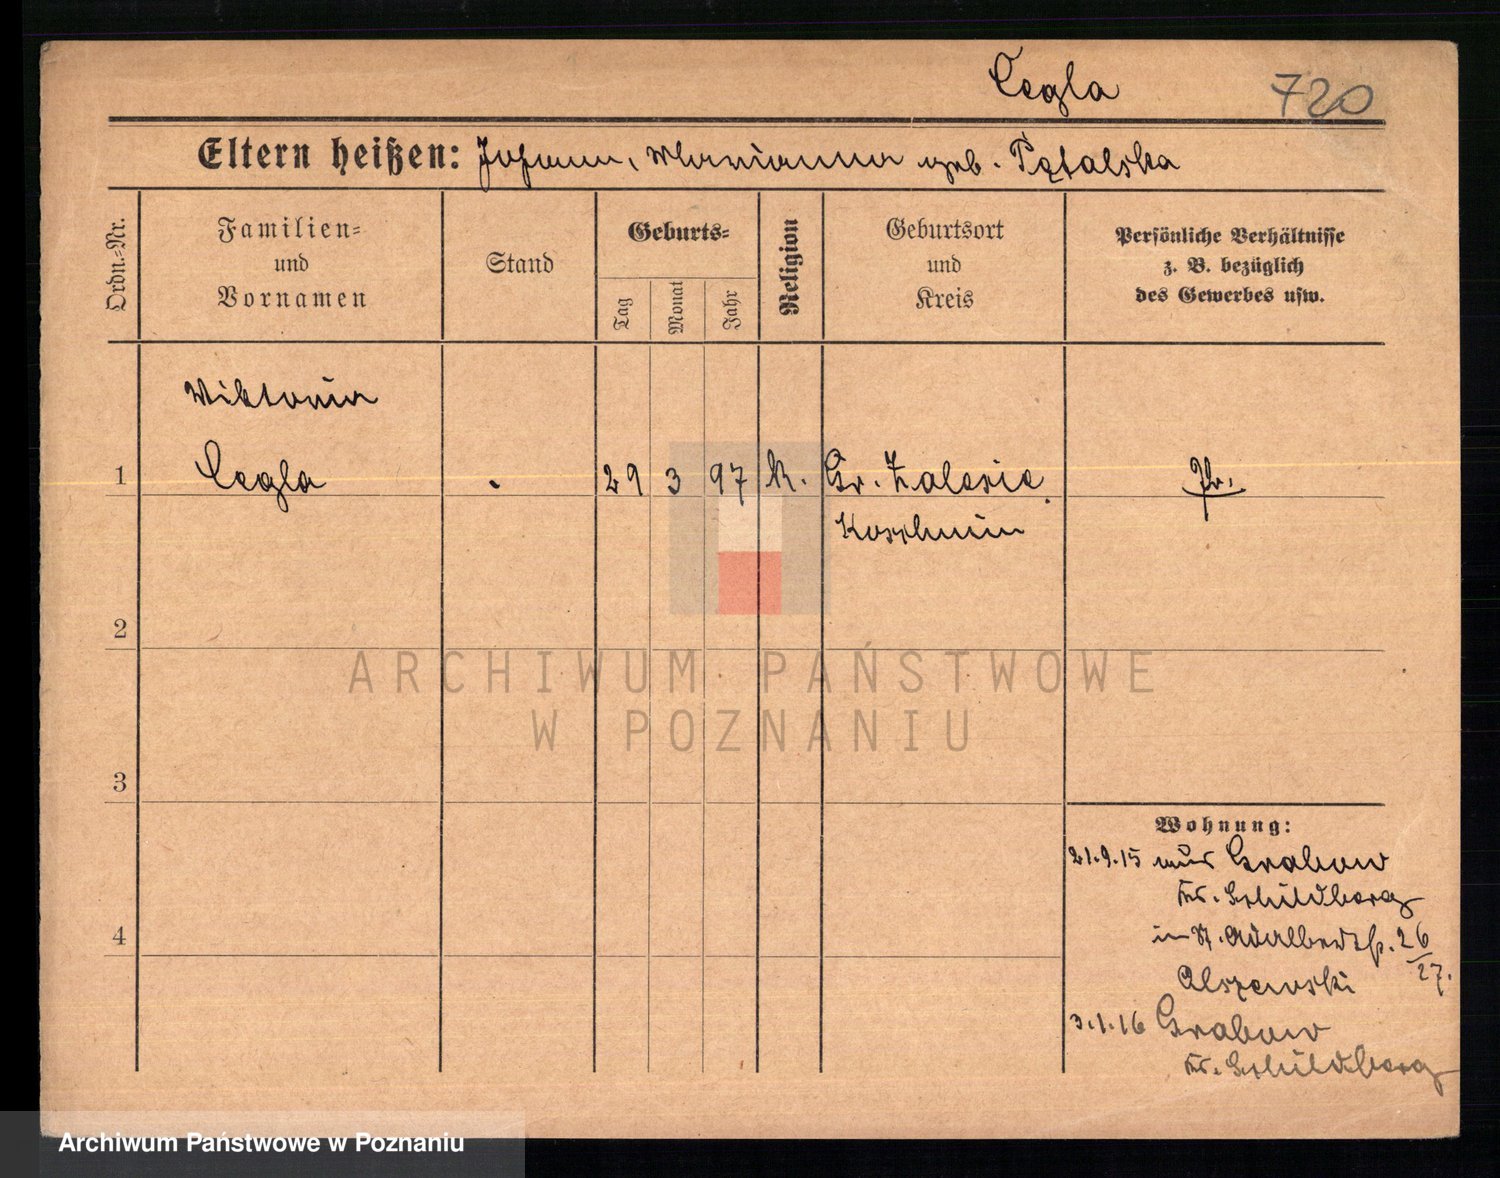 Cegla 720
Eltern heißen: Johann, Marianna geb. Pętalska
Ordn.-Nr.
Familien-
und
Vornamen
Stand
Geburts-
Tag
Monat
Jahr
Religion
Geburtsort
und
Kreis
Persönliche Verhältnisse
z. B. bezüglich
des Gewerbes usw.
Wiktoria
1 Cegla . 29 3 97 K. Gr. Zalesie Pr.
Koschmin
2
ARCHIWUM PAŃSTWOWE
W POZNANIU
3
Wohnung:
21.9.15 aus Grabow
Kr. Schildberg
4
in St. Adalbertstr. 26/27.
Olszewski
3.1.16 Grabow
Kr. Schildberg
Archiwum Państwowe w Poznaniu